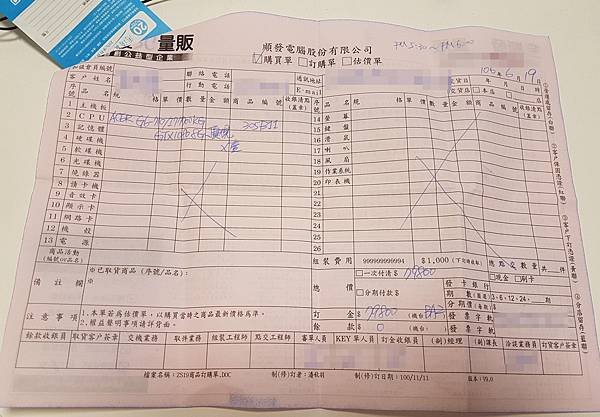 量販
創公益型企業
順發電腦股份有限公司
購買單 訂購單 估價單
PM 5:30 ~ PM 6:00
加盟會員編號
客戶姓名
聯絡電話
行動電話
通訊地址
E-mail
交貨日 106 年 6 月 19 日
交貨 本店 店
品名 規格 單價 數量 金額 商品編號 收銀清點(蓋章)
品名 規格 單價 數量 金額 商品編號 收銀清點(蓋章)
1 主機板
2 CPU ACER
3 記憶體
4 硬碟機
5 軟碟機
6 光碟機
7 燒錄器
8 讀卡機
9 音效卡
10 顯示卡
11 網路卡
12 機殼
13 電源
14 螢幕
15 鍵盤
16 滑鼠
17 喇叭
18 風扇
19 作業系統
20 印表機
21
22
23
24
25
26
商品活動
(編號or品名)
組裝費用 999999999994 $1,000 (下訂時收取) 總點交數量共 件
備註欄
※已取貨商品(序號/品名):
※
總價
一次付清$ 29800
分期付款$
現金 刷卡
發卡銀行
期數(圈選) 3、6、12、24、 期
分期價(每期) $
注意事項
1.本單若為估價單,以購買當時之商品最新價格為準。
2.權益聲明事項請詳背面。
訂金 $ 29800 (機台)
餘款 $ 0 (機台)
發票字軌
發票字軌
餘款收銀員 取貨客戶簽章 交機業務 取件業務 組裝工程師 點交工程師 審單人員 KEY單人員 訂金收銀員 (副)經理 (副)課長 洽談業務員 訂貨客戶簽章
檔案名稱:ZS19商品訂購單.DOC
制(修)訂者:潘秋羽
制(修)訂日期:100/11/11
版本:V9.0